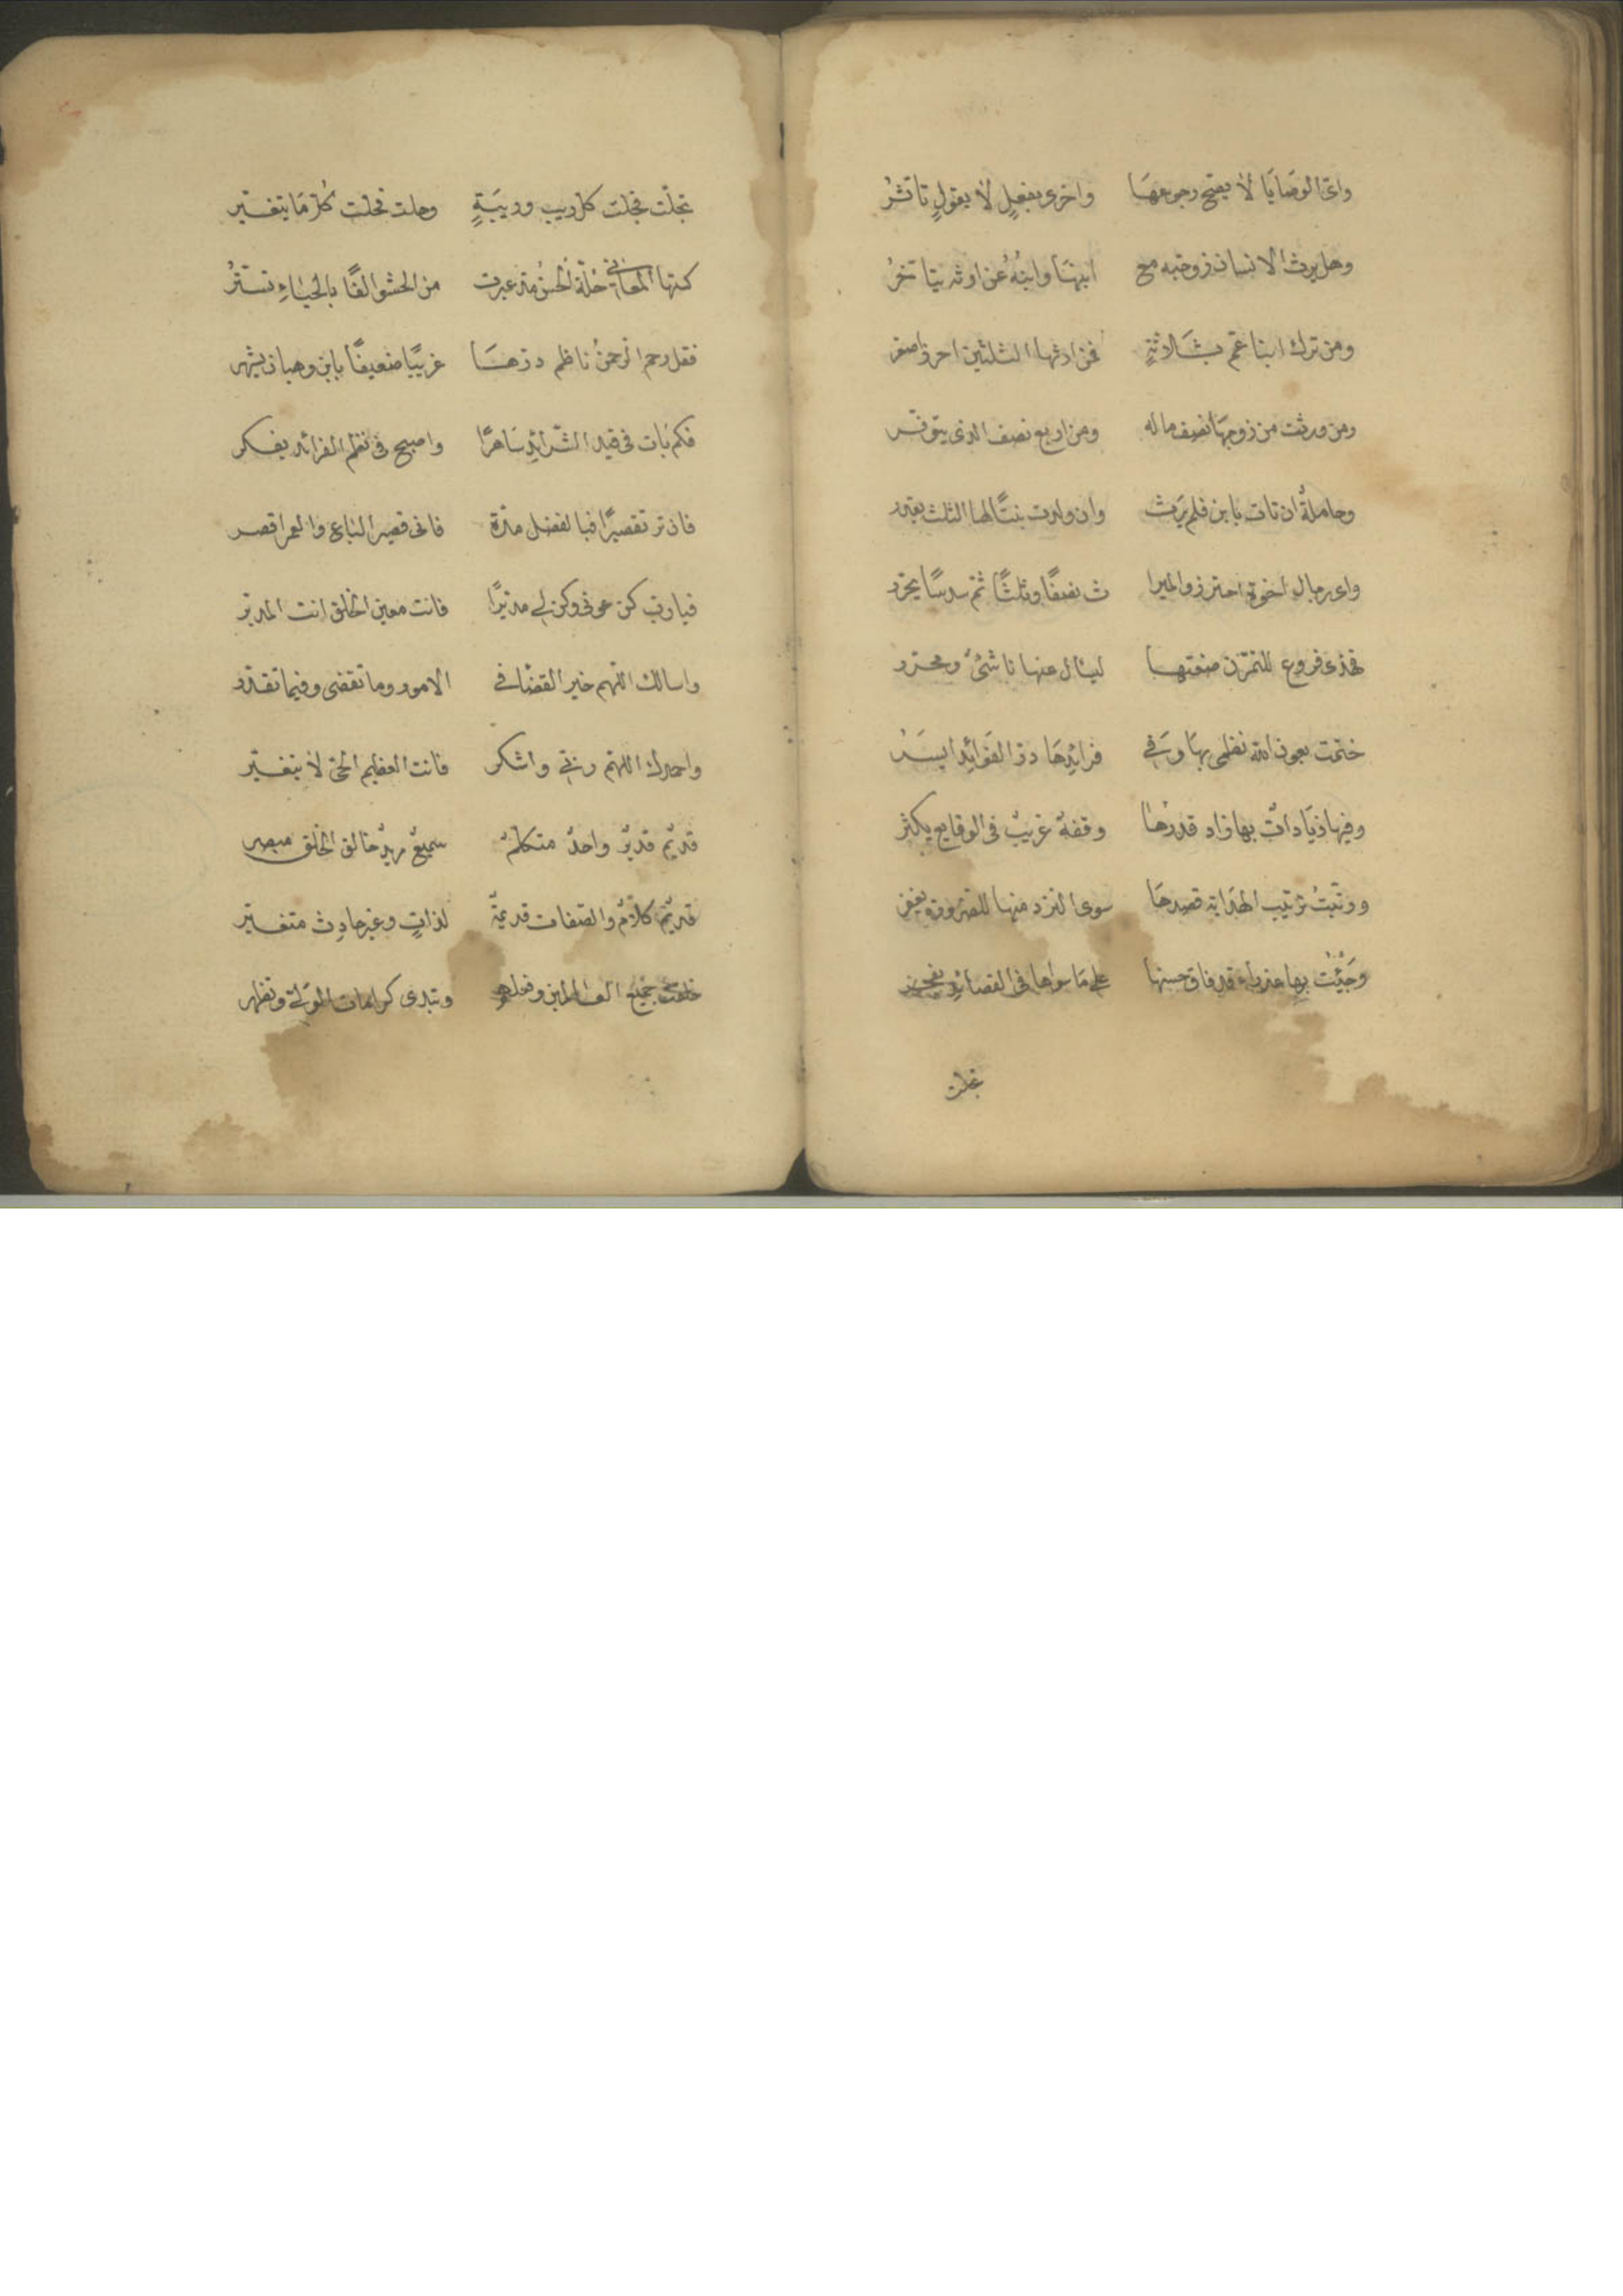 واي الوصايا لا يصح رجوعها واخرى بفعل لا بقول تاثر
وهل يرث الانسان زوجته مع ابنها وابنه عن ارثه يتاخر
ومن ترك ابنا عم بثلاثة فمن ارثها الثلثين احرز اصغر
ومن ورثت من زوجها نصف ماله ومن اربع نصف الذي يتوفر
وحاملة ان تات بابن فلم يرث وان ولدت بنتا لها الثلث يقدر
واي رجال اخوة احترزوا الميرا ث نصفا وثلثا ثم سدسا يحرر
فهذي فروع للتمرن صغتها ليسال عنها ناشئ ومحرر
ختمت بعون الله نظمي بها وفي فرائدها در الفوائد ايسر
وفيها زيادات بها زاد قدرها وقفه غريب في الوقايع يكثر
ورتبت ترتيب الهداية قصدها سوى النزر منها للضرورة يغفر
وجئت بها عذراء قد فاق حسنها على ما سواها في القصائد تفخر
تجلت
تجلت فجلت كل ريب وريبة وحلت فحلت كل ما يتغير
كستها المعاني حلة الحسن مذ عرت من الحشو الفا بالحياء تستر
فقل رحم الرحمن ناظم درها غريبا ضعيفا بابن وهبان يشهر
فكم بات في قيد الشرائد ساهرا واصبح في نظم الفرائد يفكر
فان تر تقصيرا فبالفضل مدة فاني قصير الباع والعمر اقصر
فيا رب كن عوني وكن لي مدبرا فانت معين الخلق انت المدبر
واسالك اللهم خير القضا في الامور وما تقضي وفيما تقدر
واحمدك اللهم ربي واشكر فانت العظيم الحي لا يتغير
قديم قدير واحد متكلم سميع مريد خالق الخلق مبصر
قديم كلام والصفات قديمة لذات وغير حادث متغير
خلقت جميع العالمين وفعلهم وتبدي كرامات الولي وتظهر